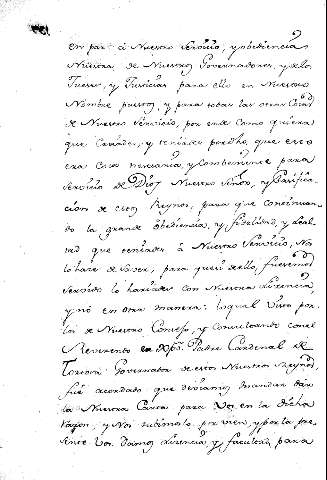 en par.te á Nuestro Servicio, y obediencia
Nuestra, de Nuestros Governadores, y de los
Jueces, y Justicias para ello en Nuestro
Nombre puestos, y para todas las otras Cosas
de Nuestro Servicio, por ende Como quiera
que Creades, y teniades por dho, que esto
era Cosa necesaria, y Combeniente para
servicio de Dios Nuestro Señor, y Pacifica-
cion de estos Reynos, para que Continuan-
do la grande obediencia, y fidelidad, y Leal-
tad que teniades á Nuestro Servicio, No
lo haveis de hacer, para que si de ello, fueremos
servidos lo hariades con Nuestra Licencia,
y nó en otra manera: Loqual Visto por
los de Nuestro Consejo, y Consultando con el
Reverendo en Xpo. Padre Cardenal de
Tortosa Governador de estos Nuestros Reynos,
fué acordado que deviamos mandar dar
la Nuestra Carta para Vos en la dicha
razon, y Nos tubimoslo por vien, y por la pre-
sente Vos damos Licencia, y facultad, para